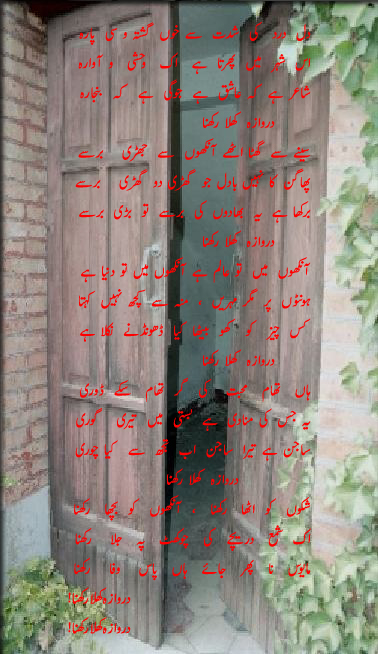 دل درد کی شدت سے خوں گشتہ و سی پارہ
اس شہر میں پھرتا ہے اک وحشی و آوارہ
شاعر ہے کہ عاشق ہے جوگی ہے کہ بنجارہ
دروازہ کھلا رکھنا
سینے سے گھٹا اٹھے آنکھوں سے جھڑی برسے
پھاگن کا نہیں بادل جو گھڑی دو گھڑی برسے
برکھا ہے یہ بھادوں کی برسے تو بڑی برسے
دروازہ کھلا رکھنا
آنکھوں میں تو عالم ہے آنکھوں میں تو دنیا ہے
ہونٹوں پر مگر مہریں ۔ منہ سے کچھ نہیں کہتا
کس چیز کو کھو بیٹھا کیا ڈھونڈنے نکلا ہے
دروازہ کھلا رکھنا
ہاں تھام محبت کی گر تھام سکے ڈوری
یہ جس کی منادی ہے بستی میں تیری گوری
ساجن ہے تیرا ساجن اب تجھ سے کیا چوری
دروازہ کھلا رکھنا
شکوں کو اٹھا رکھنا ۔ آنکھوں کو بچھا رکھنا
اک شمع دریچے کی چوکھٹ پہ جلا رکھنا
مایوس نا پھر جائے ہاں پاس وفا رکھنا
دروازہ کھلا رکھنا!
دروازہ کھلا رکھنا!